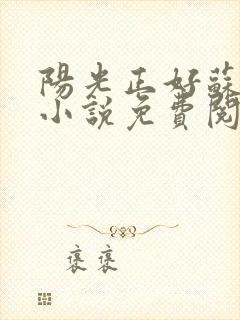 陽光正好蘇
小說免費閱
褒褒